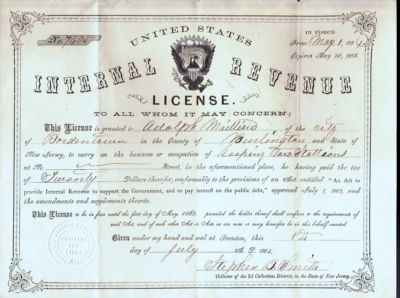 No. 7606
UNITED STATES
IN FORCE
From May 1, 1864
Expires May 1st, 1865.
INTERNAL REVENUE
LICENSE.
TO ALL WHOM IT MAY CONCERN:
This License is granted to Adolph Mailliard of the city
of Bordentown in the County of Burlington and State of
New Jersey, to carry on the business or occupation of keeping two Stallions
at No. Street in the aforesaid place, he having paid the tax
of Twenty Dollars therefor, conformably to the provisions of an Act entitled "An Act to
provide Internal Revenue to support the Government, and to pay interest on the public debt," approved July 1, 1862, and the
amendments and supplements thereto.
This License to be in force until the first day of May, 1865, provided the holder thereof shall conform to the requirements of
said Act, and of such other Act or Acts as are now or may hereafter be in this behalf enacted.
Given under my hand and seal at Trenton, this 8th
day of July A. D. 1864.
Stephen B. Smith
Collector of the 2d Collection District, in the State of New Jersey.